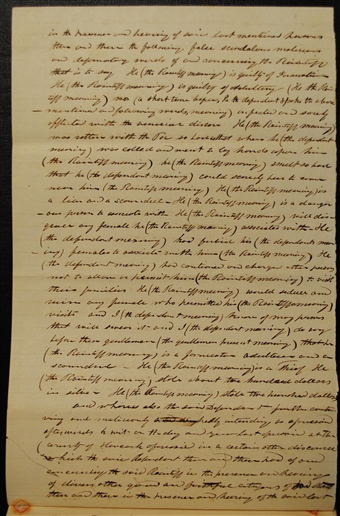 in the presence and hearing of said last mentioned persons
then and there the following false scandalous malicious
and defamatory words of and concerning the Plaintiff
that is to say He (the Plaintiff meaning) is guilty of
He (the Plaintiff meaning) is guilty of adultery - He (the Plain-
tiff meaning) was (a short time before, the defendant spoke the above
and following words, meaning) infected and sorely
afflicted with the venerial disease He (the Plaintiff meaning)
was rotten with the Pox so that when he (the defendant
meaning) was called and went to lay hands upon him
(the Plaintiff meaning) he (the Plaintiff meaning) smelt so bad
that he (the defendant meaning) could scarcely bear to come
near him (the Plaintiff meaning) He (the Plaintiff meaning) is
a liar and a scoundrel - He (the Plaintiff meaning) is a danger-
ous person to associate with He (the Plaintiff meaning) will dis-
grace any female he (the Plaintiff meaning) associates with He
(the defendant meaning) had forbid his (the defendants mean
ing) females to associate with him (the Plaintiff meaning) He
(the defendant meaning) had cautioned and charged other persons
not to allow or permit him (the Plaintiff meaning) to visit
their families He (the Plaintiff meaning) would seduce and
ruin any female who permitted his (the Plaintiff meaning)
visits and I (the defendant meaning) know of many persons
that will swear it and I (the defendant meaning) do say
before these gentlemen (the gentlemen present meaning) that he
(the Plaintiff meaning) is a fornicator adulterer and a
scoundrel - He (the Plaintiff meaning) is a thief He
(the Plaintiff meaning) stole about two hundred dollars
in silver He (the Plaintiff meaning) stole two hundred dollars
and whereas also the said Defendant further contri
ving and maliciously intending as aforesaid
afterwards to wit on the day and year last aforesaid at the
County of aforesaid in a certain other discourse
which the said defendant then and there had of and
concerning the said Plaintiff in the presence and hearing
of divers other good and faithful citizens of
then and there in the presence and hearing of the said last